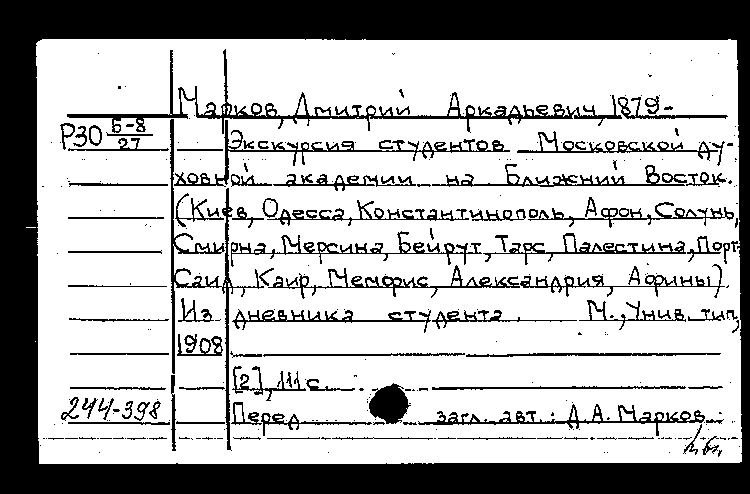 Марков, Дмитрий Аркадьевич, 1879-
Р30 Б-8/27
Экскурсия студентов Московской ду-
ховной академии на Ближний Восток.
(Киев, Одесса, Константинополь, Афон, Солунь,
Смирна, Мерсина, Бейрут, Тарс, Палестина, Порт-
Саид, Каир, Мемфис, Александрия, Афины).
Из дневника студента. М., Унив. тип,
1908
[2], 111 с.
244-398 Перед загл. авт.: Д.А. Марков.